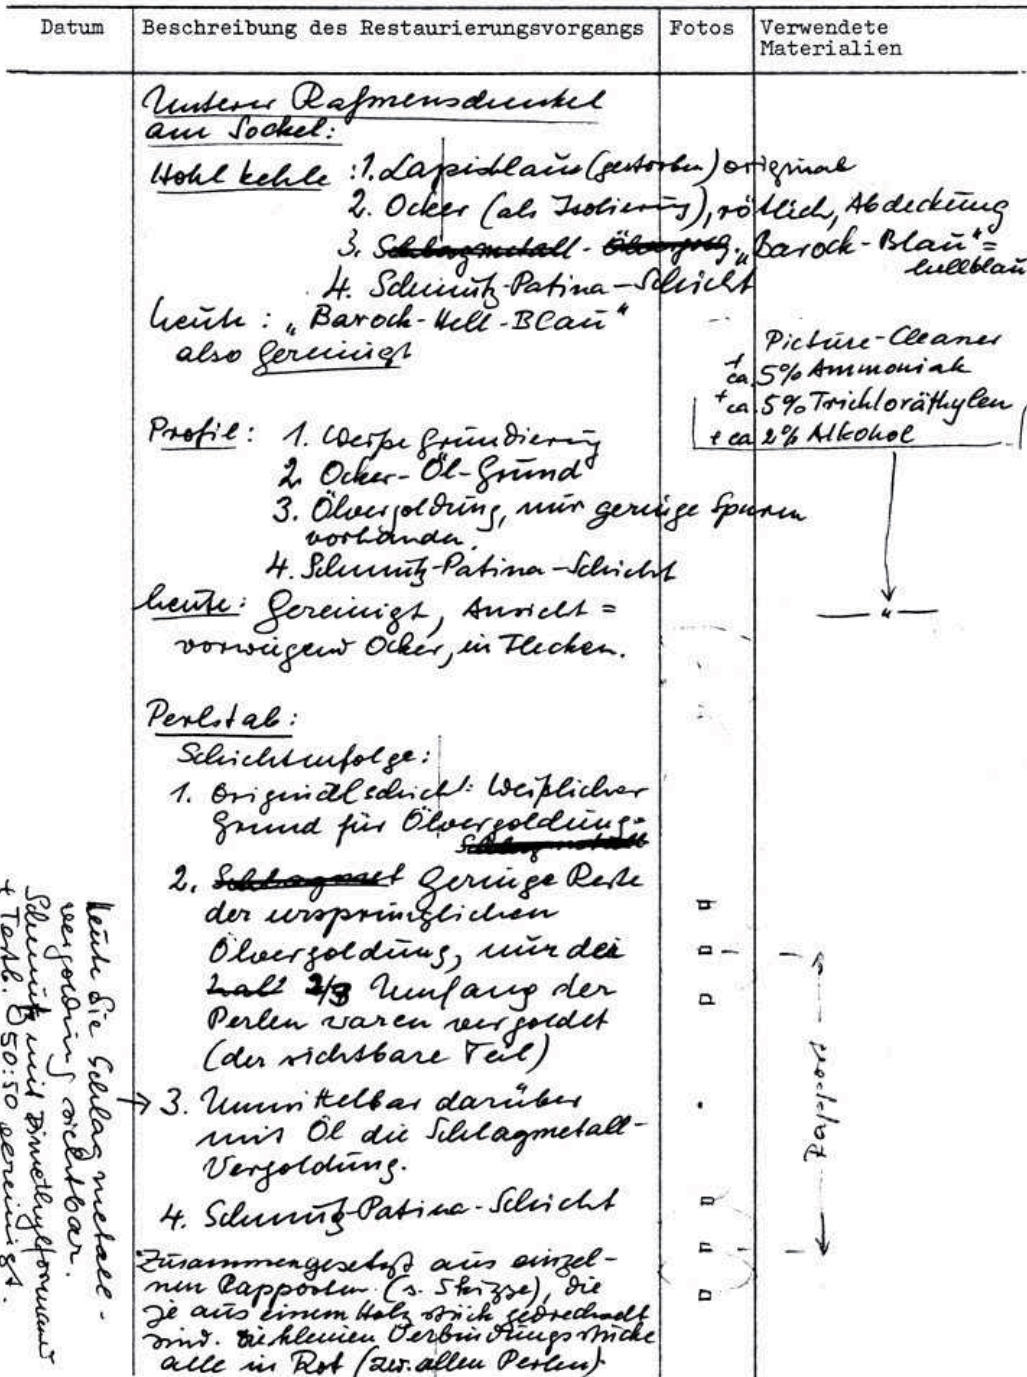 Datum
Beschreibung des Restaurierungsvorgangs
Fotos
Verwendete
Materialien
Unterer Rahmenschenkel
am Sockel:
Hohlkehle: 1. Lapisblau (gestorben) original
2. Ocker (als Isolierung), rötlich, Abdeckung
3. Schlagmetall - Ölvergold. "Barock-Blau" =
hellblau
4. Schmutz-Patina-Schicht
heute: "Barock-Hell-Blau"
also gereinigt
Picture-Cleaner
+ ca. 5% Ammoniak
+ ca. 5% Trichloräthylen
+ ca. 2% Alkohol
Profil: 1. Weiße Grundierung
2. Ocker-Öl-Grund
3. Ölvergoldung, nur geringe Spuren
vorhanden.
4. Schmutz-Patina-Schicht
heute: Gereinigt, Ansicht =
vorwiegend Ocker, in Flecken.
— " —
Perlstab:
Schichtenfolge:
1. Originalschicht: Weißlicher
Grund für Ölvergoldung.
Schlagmetall
2. Schlagmet Geringe Reste
der ursprünglichen
Ölvergoldung, nur der
halb 2/3 Umfang der
Perlen waren vergoldet
(der sichtbare Teil)
→ 3. Unmittelbar darüber
mit Öl die Schlagmetall-
Vergoldung.
4. Schmutz-Patina-Schicht
Zusammengesetzt aus einzel-
nen Rapporten (s. Skizze), die
je aus einem Holzstück gedrechselt
sind. Die kleinen Verbindungsstücke
alle in Rot (zw. allen Perlen)
heute die Schlagmetall-
vergoldung sichtbar.
Schmutz mit Dimethylformamid
+ 50:50 gereinigt.